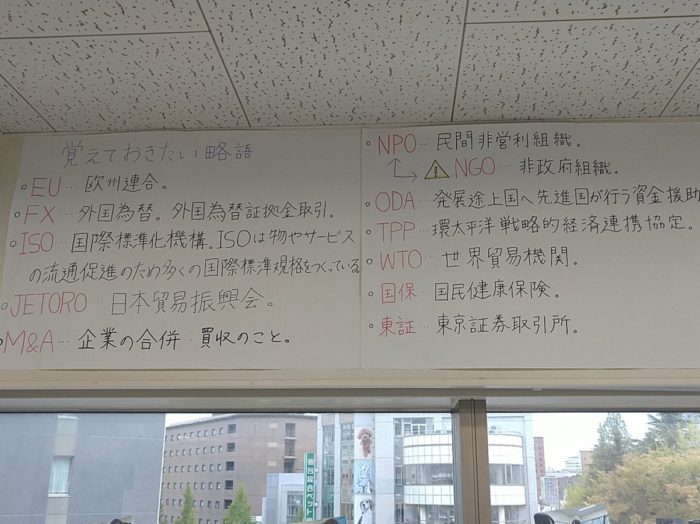 覚えておきたい略語
・EU…欧州連合。
・FX…外国為替。外国為替証拠金取引。
・ISO…国際標準化機構。ISOは物やサービス
の流通促進のため多くの国際標準規格をつくっている
・JETORO…日本貿易振興会。
・M&A…企業の合併・買収のこと。
・NPO…民間非営利組織。
NGO…非政府組織.
・ODA…発展途上国へ先進国が行う資金援助
・TPP…環太平洋戦略的経済連携協定。
・WTO…世界貿易機関。
・国保…国民健康保険。
・東証…東京証券取引所。
仙台総合ペット